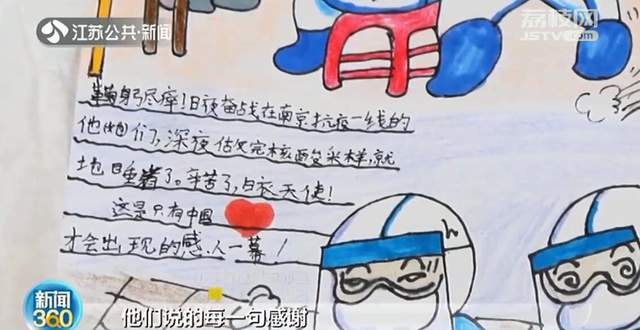 江苏公共·新闻
荔枝网
JSTV.com
鞠躬尽瘁!日夜奋战在南京抗疫一线的
他(她)们,深夜估文完核酸采样,就
地睡着了。辛苦了,白衣天使!
这是只有中国
才会出现的感人一幕!
新闻
360
他们说的每一句感谢